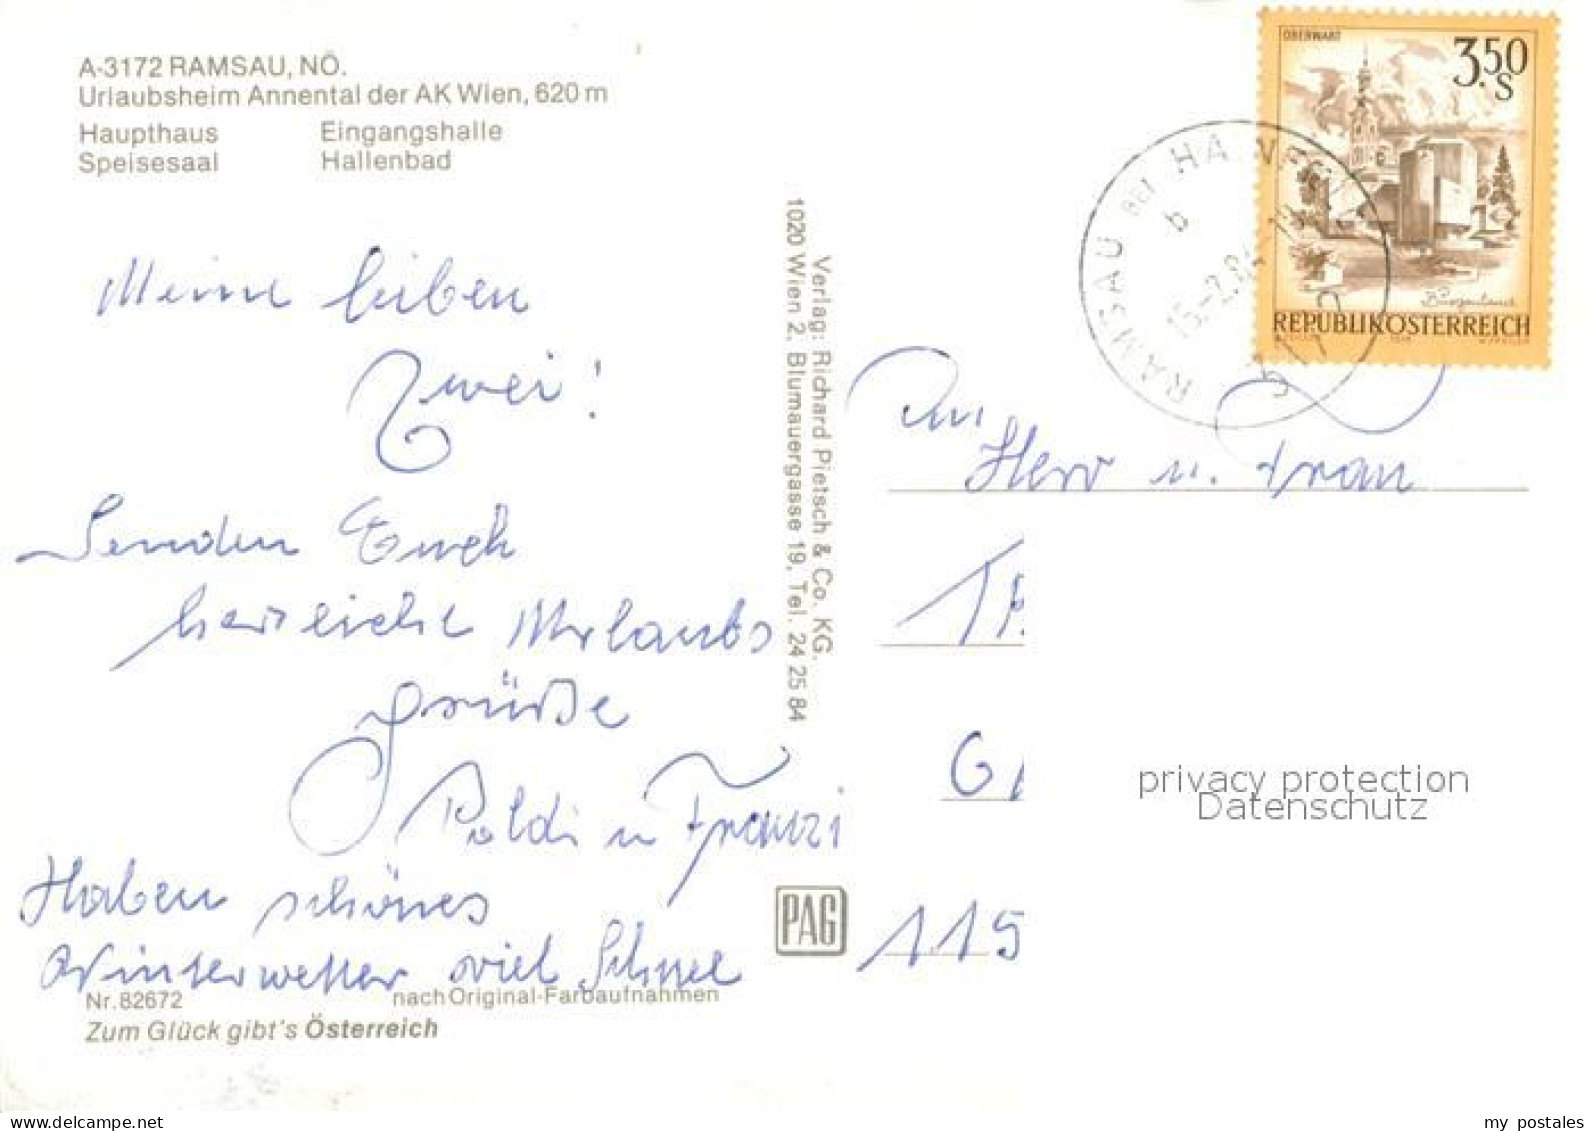 A-3172 RAMSAU, NÖ.
Urlaubsheim Annental der AK Wien, 620 m
Haupthaus Eingangshalle
Speisesaal Hallenbad
Meine lieben
Zwei!
Senden Euch
herzliche Urlaubs
grüße
Poldi u Franzi
Haben schönes
Winterwetter viel Schnee
Nr. 82672 nach Original-Farbaufnahmen
Zum Glück gibt's Österreich
Verlag: Richard Pietsch & Co. KG.
1020 Wien 2, Blumauergasse 19, Tel. 24 25 84
PAG
OBERWART
3.50 S
Burgenland
REPUBLIK ÖSTERREICH
RAMSAU BEI
b
15.-2.84
An
Herr u. Frau
115
privacy protection
Datenschutz
my postales